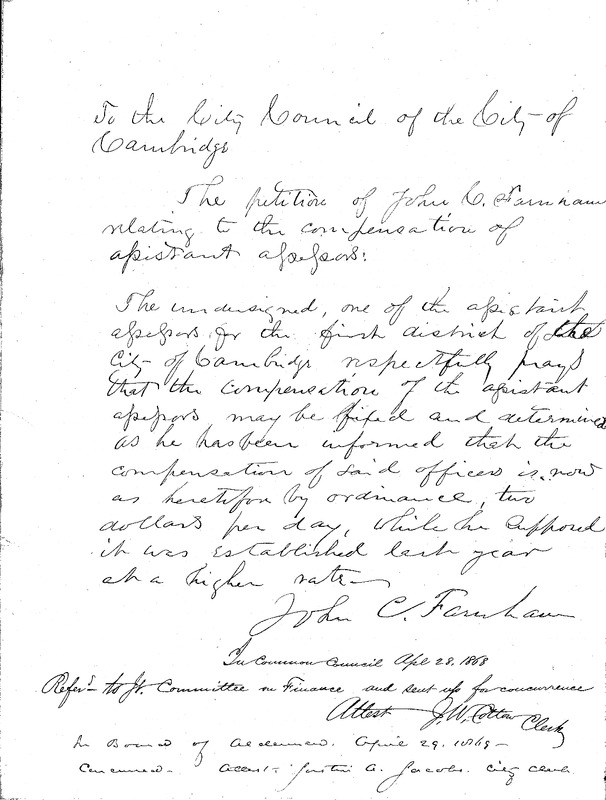 To the City Council of the City of
Cambridge
The petition of John C. Farnham
relating to the compensation of
assistant assessors:
The undersigned, one of the assistant
assessors for the first district of the
City of Cambridge respectfully prays
that the compensation of the assistant
assessors may be fixed and determined
as he has been informed that the
compensation of said officers is now
as heretofore by ordinance, two
dollars per day, while he supposed
it was established last year
at a higher rate
John C. Farnham
In Common Council Apl 28, 1868
Refer'd to Jt. Committee on Finance and sent up for concurrence
Attest J. W. Cotton Clerk
In Board of Aldermen. April 29. 1868 –
Concurred – Attest – Justin A. Jacobs. City Clerk